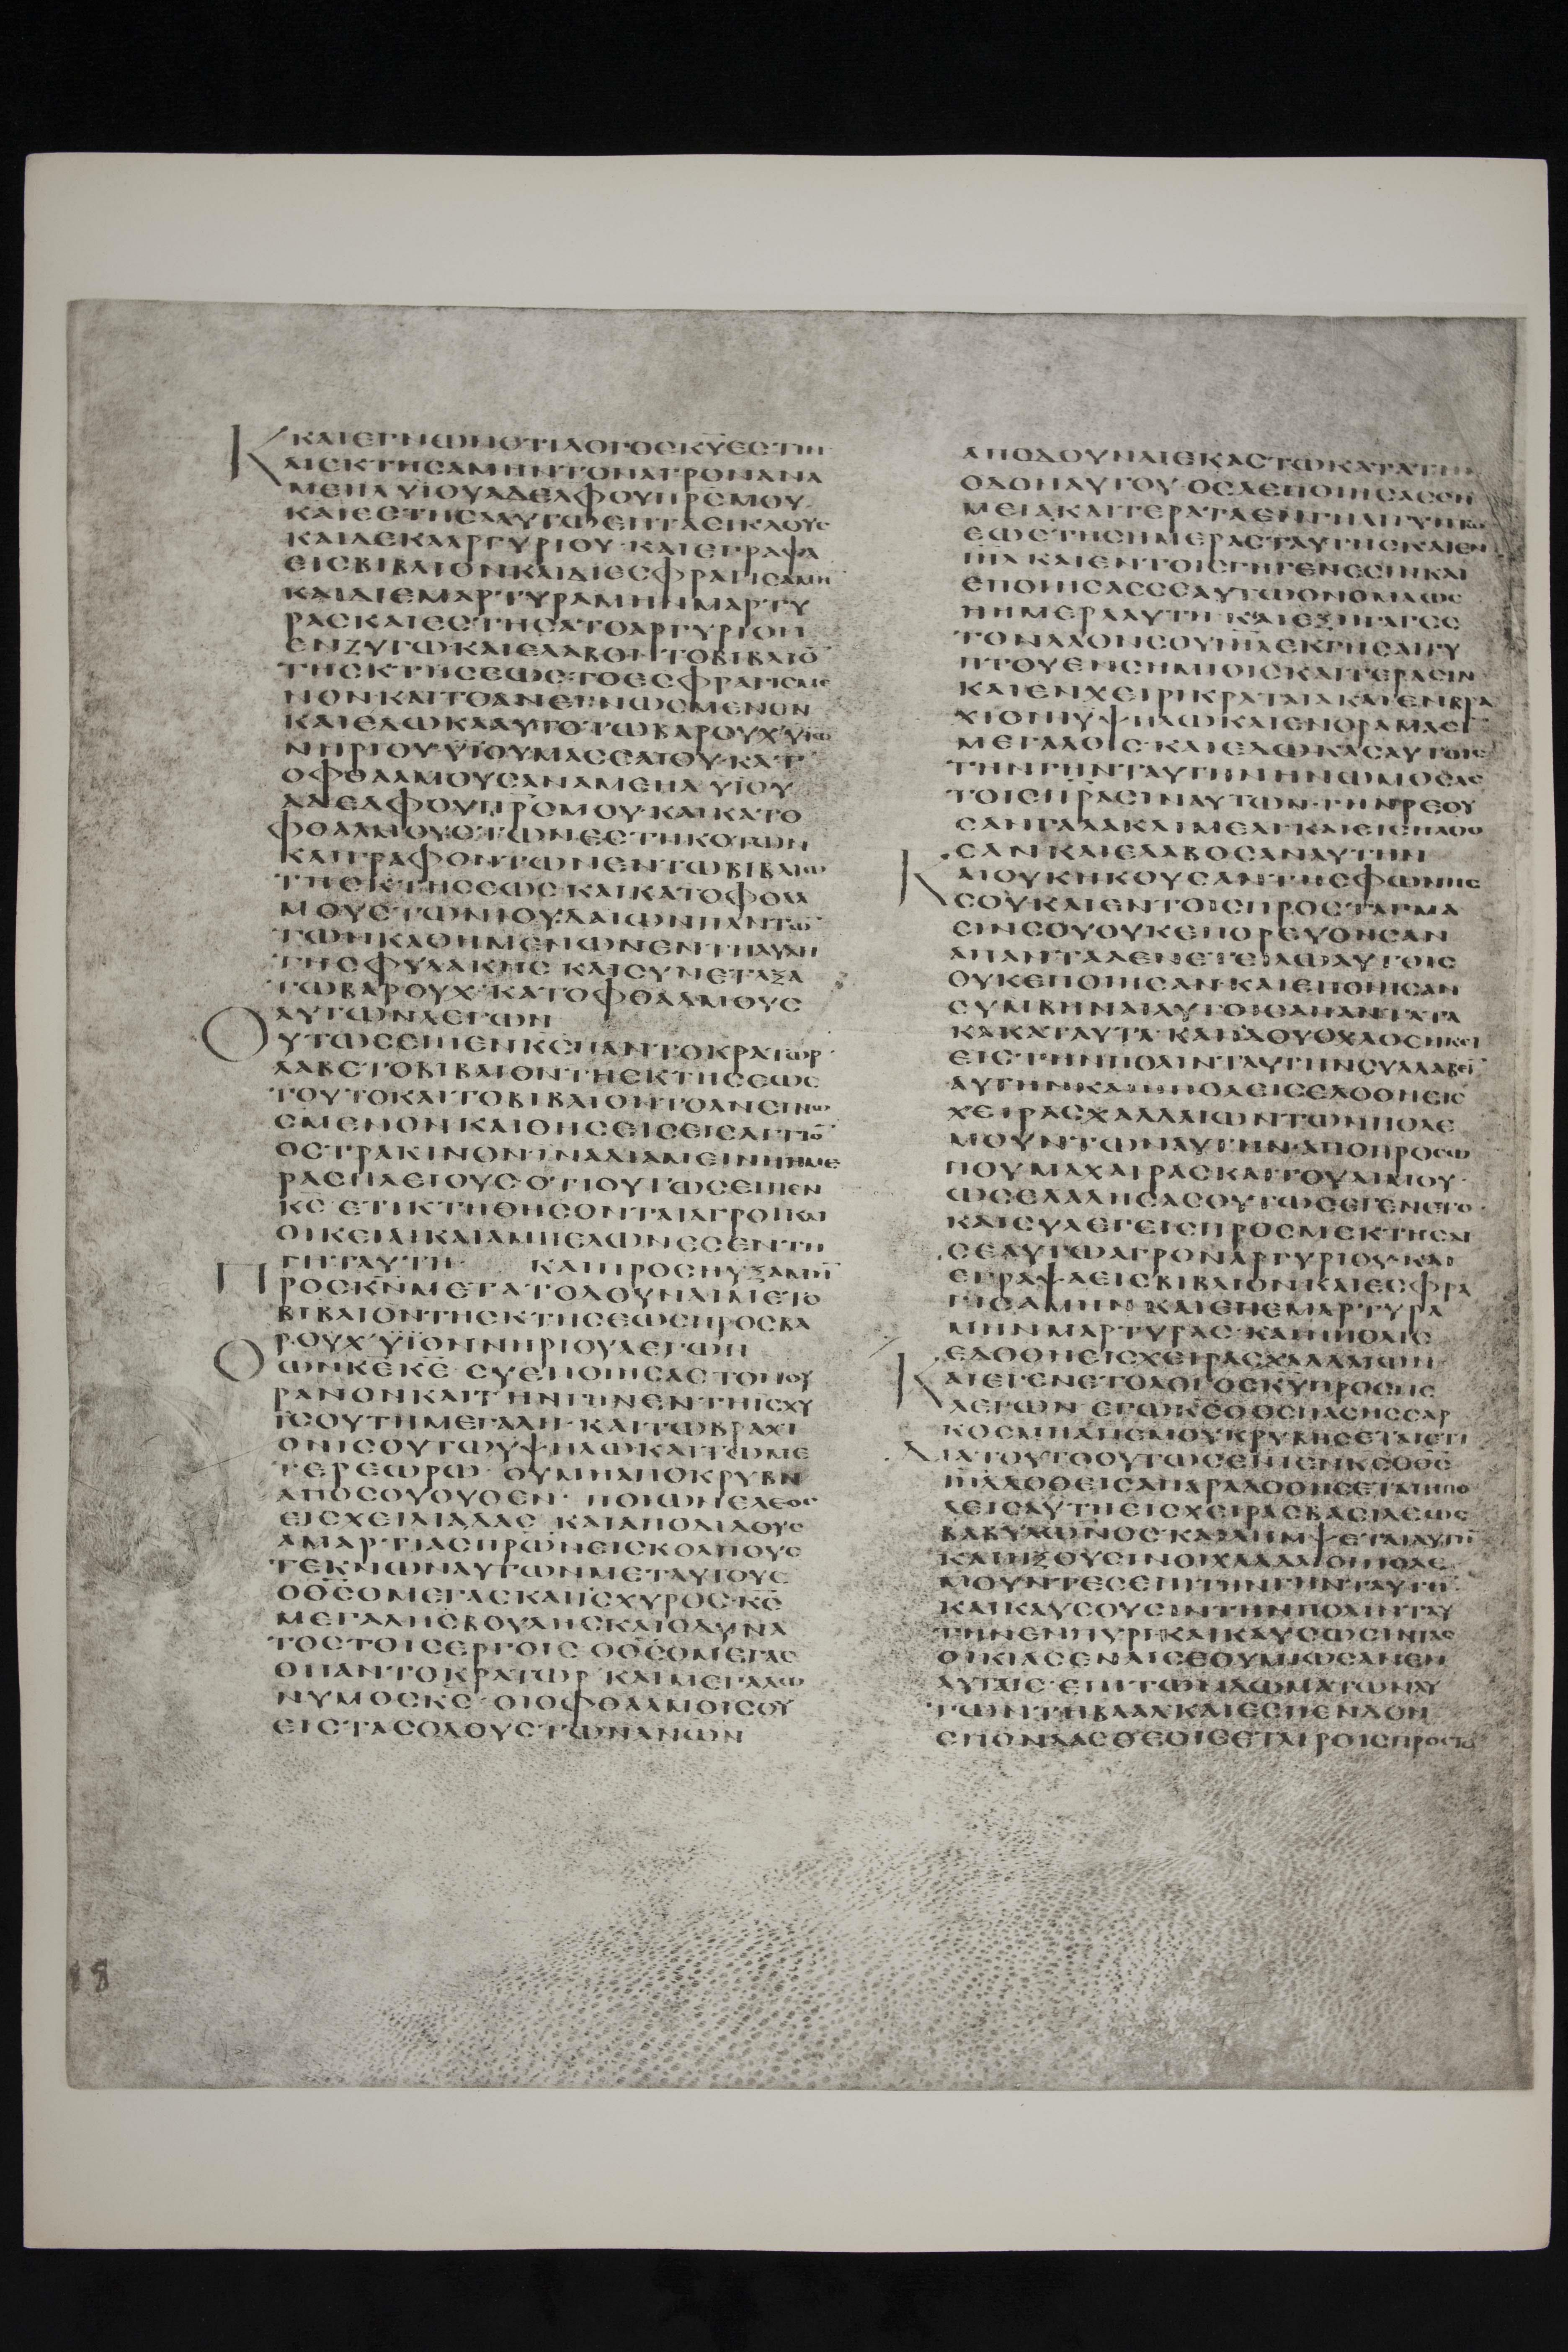 ΚΑΙΕΓΝΩΝΟΤΙΛΟΓΟΣΚΥΕΣΤΙΝ
ΚΑΙΕΚΤΗΣΑΜΗΝΤΟΝΑΓΡΟΝΑΝΑ
ΜΕΗΛΥΪΟΥΑΔΕΛΦΟΥΠΡΣΜΟΥ
ΚΑΙΕΣΤΗΣΑΑΥΤΩΕΠΤΑΣΙΚΛΟΥΣ
ΚΑΙΔΕΚΑΑΡΓΥΡΙΟΥ·ΚΑΙΕΓΡΑΨΑ
ΕΙΣΒΙΒΛΙΟΝΚΑΙΔΙΕΣΦΡΑΓΙΣΑΜΗ
ΚΑΙΔΙΕΜΑΡΤΥΡΑΜΗΝΜΑΡΤΥ
ΡΑΣΚΑΙΕΣΤΗΣΑΤΟΑΡΓΥΡΙΟΝ
ΕΝΖΥΓΩΚΑΙΕΛΑΒΟΝΤΟΒΙΒΛΙΟ
ΤΗΣΚΤΗΣΕΩΣ·ΤΟΕΣΦΡΑΓΙΣΜΕ
ΝΟΝΚΑΙΤΟΑΝΕΓΝΩΣΜΕΝΟΝ
ΚΑΙΕΔΩΚΑΑΥΤΟΤΩΒΑΡΟΥΧΥΪΩ
ΝΗΡΙΟΥ·ΥΪΟΥΜΑΣΣΑΙΟΥ·ΚΑΤ
ΟΦΘΑΛΜΟΥΣΑΝΑΜΕΗΛΥΪΟΥ
ΑΔΕΛΦΟΥΠΡΣΜΟΥ·ΚΑΙΚΑΤΟ
ΦΘΑΛΜΟΥΣΤΩΝΕΣΤΗΚΟΤΩΝ
ΚΑΙΓΡΑΦΟΝΤΩΝΕΝΤΩΒΙΒΛΙΩ
ΤΗΣΚΤΗΣΕΩΣ·ΚΑΙΚΑΤΟΦΘΑΛ
ΜΟΥΣΤΩΝΙΟΥΔΑΙΩΝΠΑΝΤΩ
ΤΩΝΚΑΘΗΜΕΝΩΝΕΝΤΗΑΥΛΗ
ΤΗΣΦΥΛΑΚΗΣ ΚΑΙΣΥΝΕΤΑΞΑ
ΤΩΒΑΡΟΥΧ·ΚΑΤΟΦΘΑΛΜΟΥΣ
ΑΥΤΩΝΛΕΓΩΝ
ΟΥΤΩΣΕΙΠΕΝΚΣΠΑΝΤΟΚΡΑΤΩΡ·
ΛΑΒΕΤΟΒΙΒΛΙΟΝΤΗΣΚΤΗΣΕΩΣ
ΤΟΥΤΟΚΑΙΤΟΒΙΒΛΙΟΝΤΟΑΝΕΓΝΩ
ΣΜΕΝΟΝΚΑΙΘΗΣΕΙΣΕΙΣΑΓΓΙΟ
ΟΣΤΡΑΚΙΝΟΝ·ΙΝΑΔΙΑΜΕΙΝΗΗΜΕ
ΡΑΣΠΛΕΙΟΥΣ·ΟΤΙΟΥΤΩΣΕΙΠΕΝ
ΚΣ ΕΤΙΚΤΗΘΗΣΟΝΤΑΙΑΓΡΟΙΚΑΙ
ΟΙΚΕΙΑΙΚΑΙΑΜΠΕΛΩΝΕΣΕΝΤΗ
ΓΗΤΑΥΤΗ· ΚΑΙΠΡΟΣΗΥΞΑΜΗ
ΠΡΟΣΚΝΜΕΤΑΤΟΔΟΥΝΑΙΜΕΤΟ
ΒΙΒΛΙΟΝΤΗΣΚΤΗΣΕΩΣΠΡΟΣΒΑ
ΡΟΥΧΥΪΟΝΝΗΡΙΟΥΛΕΓΩΝ
ΟΩΝΚΕΚΕ ΣΥΕΠΟΙΗΣΑΣΤΟΝΟΥ
ΡΑΝΟΝΚΑΙΤΗΝΓΗΝΕΝΤΗΙΣΧΥ
ΪΣΟΥΤΗΜΕΓΑΛΗ·ΚΑΙΤΩΒΡΑΧΙ
ΟΝΙΣΟΥΤΩΥΨΗΛΩΚΑΙΤΩΜΕ
ΤΕΡΕΩΡΩ· ΟΥΜΗΑΠΟΚΡΥΒΗ
ΑΠΟΣΟΥΟΥΘΕΝ· ΠΟΙΩΝΕΛΕΟΣ
ΕΙΣΧΕΙΛΙΑΔΑΣ ΚΑΙΑΠΟΔΙΔΟΥΣ
ΑΜΑΡΤΙΑΣΠΡΩΝΕΙΣΚΟΛΠΟΥΣ
ΤΕΚΝΩΝΑΥΤΩΝΜΕΤΑΥΤΟΥΣ
ΟΘΣΟΜΕΓΑΣΚΑΙΙΣΧΥΡΟΣ·ΚΣ
ΜΕΓΑΛΗΣΒΟΥΛΗΣΚΑΙΔΥΝΑ
ΤΟΣΤΟΙΣΕΡΓΟΙΣ ΟΘΣΟΜΕΓΑΣ
ΟΠΑΝΤΟΚΡΑΤΩΡ ΚΑΙΜΕΓΑΛΩ
ΝΥΜΟΣΚΣ·ΟΙΟΦΘΑΛΜΟΙΣΟΥ
ΕΙΣΤΑΣΟΔΟΥΣΤΩΝΑΝΩΝ
ΑΠΟΔΟΥΝΑΙΕΚΑΣΤΩΚΑΤΑΤΗΝ
ΟΔΟΝΑΥΤΟΥ·ΟΣΑΕΠΟΙΗΣΑΣΣΗ
ΜΕΙΑΚΑΙΤΕΡΑΤΑΕΝΓΗΑΙΓΥΠΤΩ
ΕΩΣΤΗΣΗΜΕΡΑΣΤΑΥΤΗΣΚΑΙΕΝ
ΙΗΛ ΚΑΙΕΝΤΟΙΣΓΗΓΕΝΕΣΙΝΚΑΙ
ΕΠΟΙΗΣΑΣΣΕΑΥΤΩΟΝΟΜΑΩΣ
ΗΗΜΕΡΑΑΥΤΗ·ΚΑΙΕΞΗΓΑΓΕΣ
ΤΟΝΛΑΟΝΣΟΥΙΗΛΕΚΓΗΣΑΙΓΥ
ΠΤΟΥΕΝΣΗΜΙΟΙΣΚΑΙΤΕΡΑΣΙΝ
ΚΑΙΕΝΧΕΙΡΙΚΡΑΤΑΙΑΚΑΙΕΝΒΡΑ
ΧΙΟΝΙΥΨΗΛΩΚΑΙΕΝΟΡΑΜΑΣΙ
ΜΕΓΑΛΟΙΣ·ΚΑΙΕΔΩΚΑΣΑΥΤΟΙΣ
ΤΗΝΓΗΝΤΑΥΤΗΝΗΝΩΜΟΣΑΣ
ΤΟΙΣΠΡΑΣΙΝΑΥΤΩΝ·ΓΗΝΡΕΟΥ
ΣΑΝΓΑΛΑΚΑΙΜΕΛΙ·ΚΑΙΕΙΣΗΛΘΟ
ΣΑΝΚΑΙΕΛΑΒΟΣΑΝΑΥΤΗΝ
ΚΑΙΟΥΚΗΚΟΥΣΑΝΤΗΣΦΩΝΗΣ
ΣΟΥΚΑΙΕΝΤΟΙΣΠΡΟΣΤΑΓΜΑ
ΣΙΝΣΟΥΟΥΚΕΠΟΡΕΥΘΗΣΑΝ
ΑΠΑΝΤΑΑΕΝΕΤΕΙΛΩΑΥΤΟΙΣ
ΟΥΚΕΠΟΙΗΣΑΝ·ΚΑΙΕΠΟΙΗΣΑΝ
ΣΥΜΒΗΝΑΙΑΥΤΟΙΣΑΠΑΝΤΑΤΑ
ΚΑΚΑΤΑΥΤΑ·ΚΑΙΙΔΟΥΟΧΛΟΣΗΚΕΙ
ΕΙΣΤΗΝΠΟΛΙΝΤΑΥΤΗΝΣΥΛΛΑΒΕΙ
ΑΥΤΗΝ·ΚΑΙΗΠΟΛΕΙΣΕΔΟΘΗΕΙΣ
ΧΕΙΡΑΣΧΑΛΔΑΙΩΝΤΩΝΠΟΛΕ
ΜΟΥΝΤΩΝΑΥΤΗΝ·ΑΠΟΠΡΟΣΩ
ΠΟΥΜΑΧΑΙΡΑΣΚΑΙΤΟΥΛΙΜΟΥ·
ΩΣΕΛΑΛΗΣΑΣΟΥΤΩΣΕΓΕΝΕΤΟ·
ΚΑΙΣΥΛΕΓΕΙΣΠΡΟΣΜΕΚΤΗΣΑΙ
ΣΕΑΥΤΩΑΓΡΟΝΑΡΓΥΡΙΟΥ·ΚΑΙ
ΕΓΡΑΨΑΕΙΣΒΙΒΛΙΟΝΚΑΙΕΣΦΡΑ
ΓΙΣΑΜΗΝ ΚΑΙΕΠΕΜΑΡΤΥΡΑ
ΜΗΝΜΑΡΤΥΡΑΣ·ΚΑΙΗΠΟΛΙΣ
ΕΔΟΘΗΕΙΣΧΕΙΡΑΣΧΑΛΔΑΙΩΝ·
ΚΑΙΕΓΕΝΕΤΟΛΟΓΟΣΚΥΠΡΟΣΜΕ
ΛΕΓΩΝ ΕΓΩΚΣΟΘΣΠΑΣΗΣΣΑΡ
ΚΟΣΜΗΑΠΕΜΟΥΚΡΥΒΗΣΕΤΑΙΤΙ
ΔΙΑΤΟΥΤΟΟΥΤΩΣΕΙΠΕΝΚΣΟΘΣ
ΙΗΛΔΟΘΕΙΣΑΠΑΡΑΔΟΘΗΣΕΤΑΙΗΠΟ
ΛΕΙΣΑΥΤΗΕΙΣΧΕΙΡΑΣΒΑΣΙΛΕΩΣ
ΒΑΒΥΛΩΝΟΣ·ΚΑΙΛΗΜΨΕΤΑΙΑΥΤΗ
ΚΑΙΗΞΟΥΣΙΝΟΙΧΑΛΔΑΙΟΙΠΟΛΕ
ΜΟΥΝΤΕΣΕΠΙΤΗΝΓΗΝΤΑΥΤΗ
ΚΑΙΚΑΥΣΟΥΣΙΝΤΗΝΠΟΛΙΝΤΑΥ
ΤΗΝΕΝΠΥΡΙ·ΚΑΙΚΑΥΣΩΣΙΝΤΑΣ
ΟΙΚΙΑΣΕΝΑΙΣΕΘΥΜΙΩΣΑΝΕΝ
ΑΥΤΑΙΣ·ΕΠΙΤΩΝΔΩΜΑΤΩΝΑΥ
ΤΩΝΤΗΒΑΑΛ·ΚΑΙΕΣΠΕΝΔΟΝ
ΣΠΟΝΔΑΣΘΕΟΙΣΕΤΑΙΡΟΙΣΠΡΟΣΤΟ